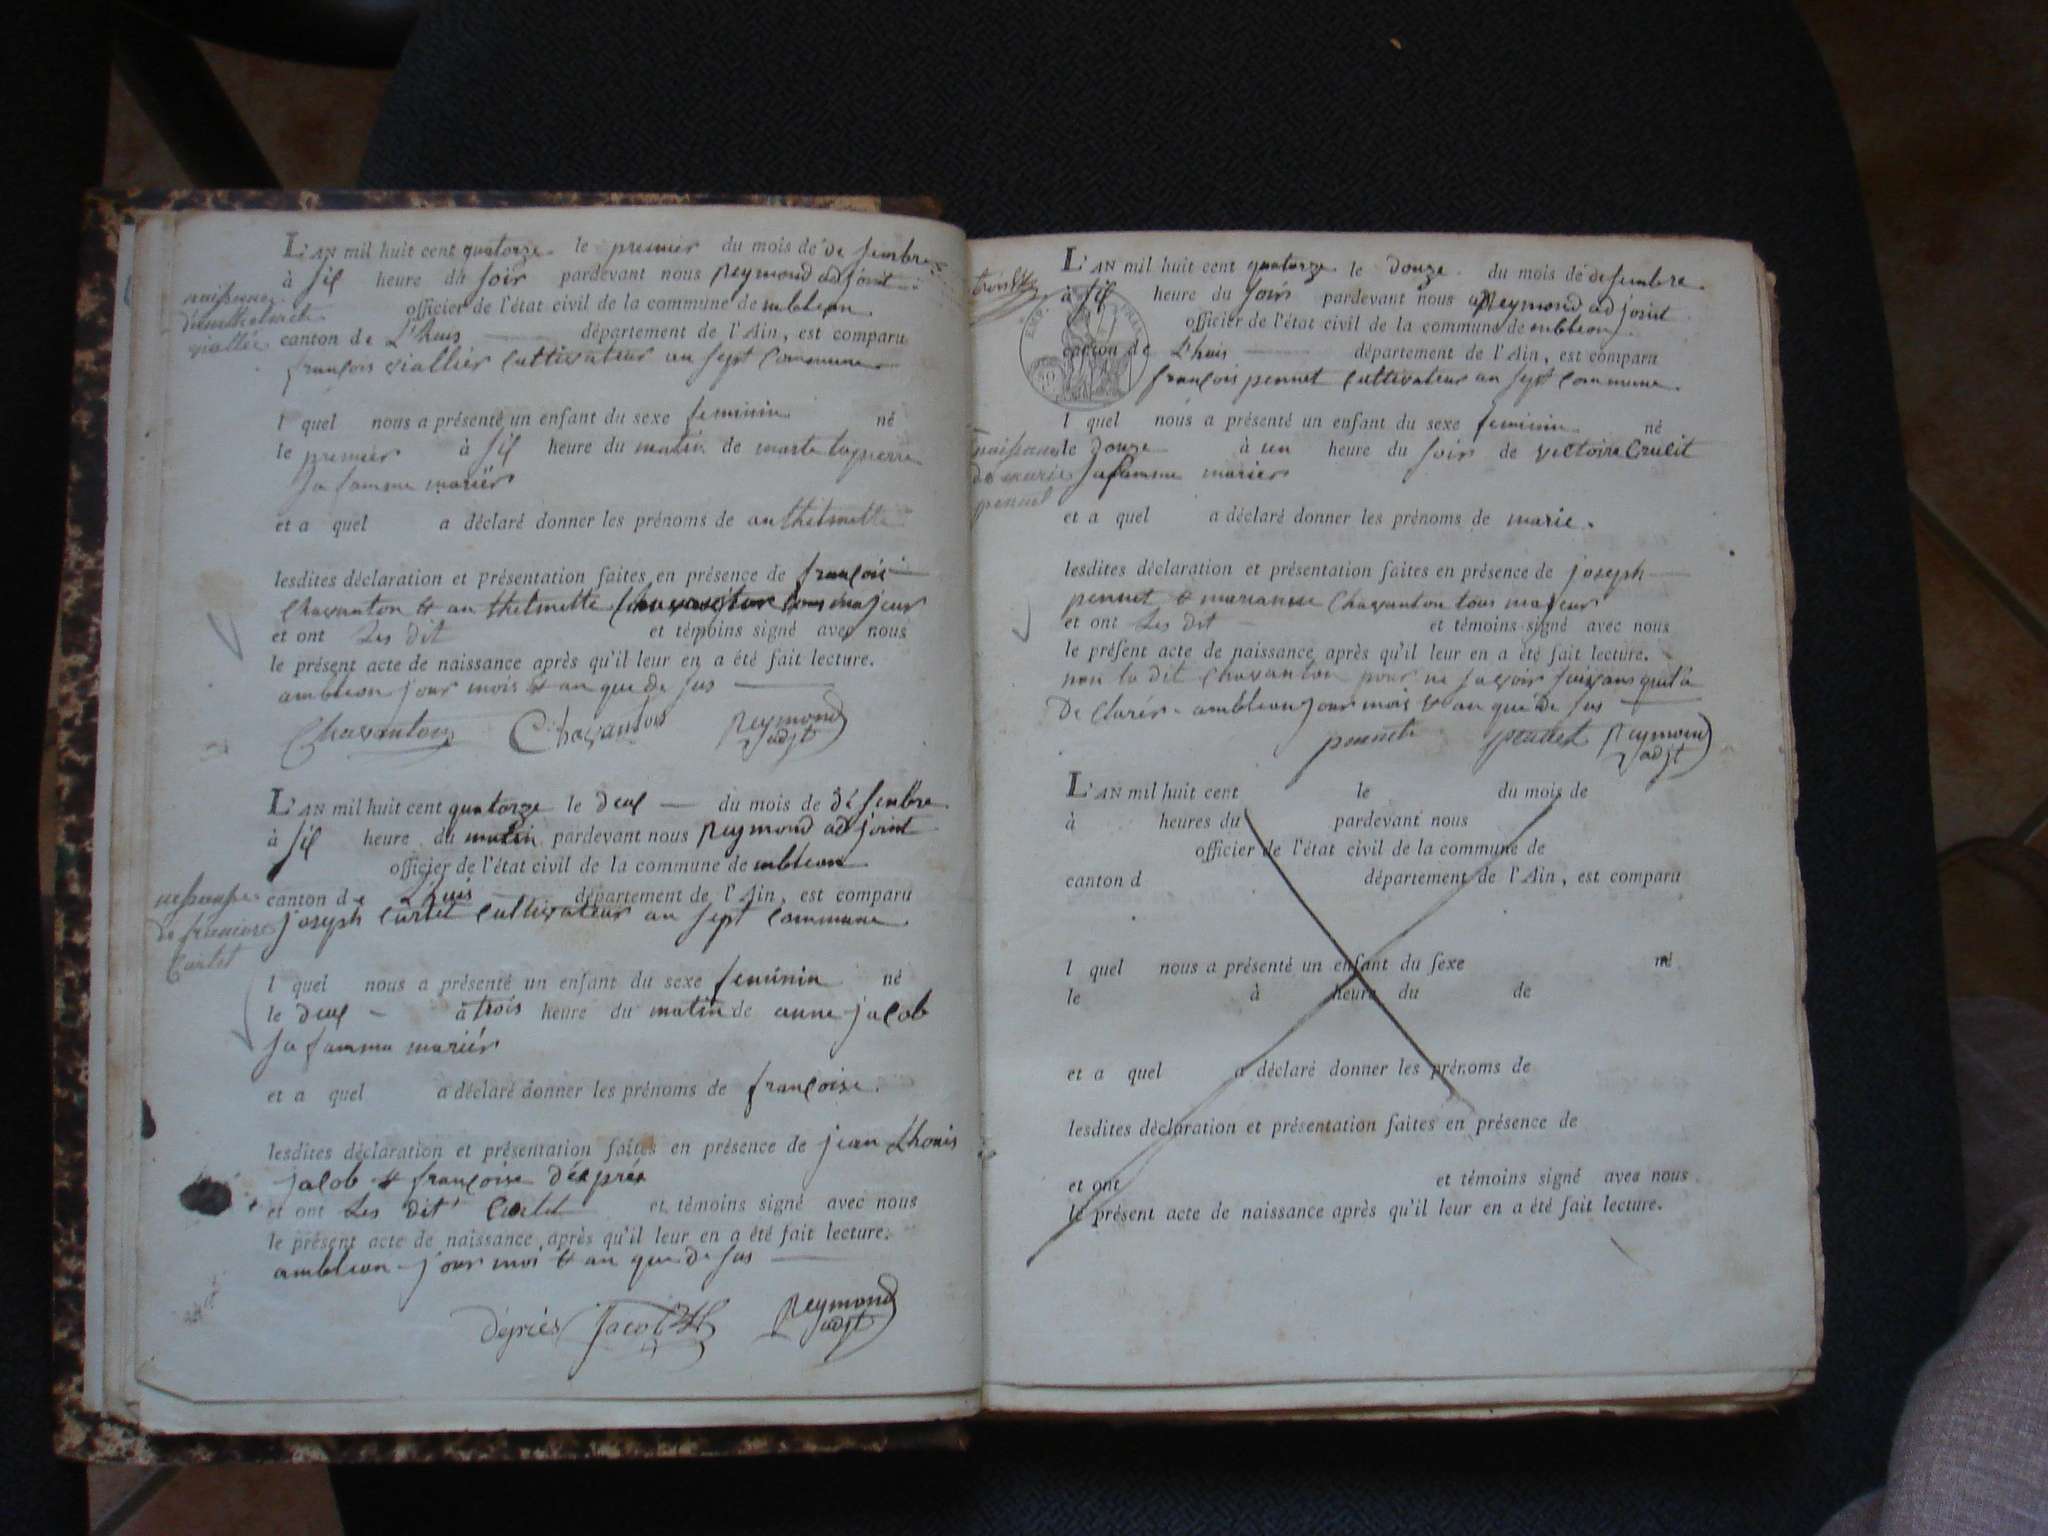 L'AN mil huit cent quatorze le premier du mois de de sembre
à six heure du soir pardevant nous Reymond adjoint
officier de l'état civil de la commune de mbleon
canton de L'huis département de l'Ain, est comparu
françois viallier cultivateur au sept commune
naissance
viallier
l quel nous a présenté un enfant du sexe feminin né
le premier à six heure du matin de
sa famme mariér
et a quel a déclaré donner les prénoms de anthelmette
lesdites déclaration et présentation faites en présence de françois
Chavanton & an thelmette majeur
et ont Les dit et témoins signé avec nous
le présent acte de naissance après qu'il leur en a été fait lecture.
ambleon jour mois & an que de sus
Chavanton Chavanton Reymond adjt
L'AN mil huit cent quatorze le deux du mois de dé sembre
à six heure du matin pardevant nous Reymond adjoint
officier de l'état civil de la commune de mbleon
canton de L'huis département de l'Ain, est comparu
joseph curtet cultivateur au sept commune
de francoise
Curtet
l quel nous a présenté un enfant du sexe feminin né
le deux à trois heure du matin de anne jacob
sa famme mariér
et a quel a déclaré donner les prénoms de françoise.
lesdites déclaration et présentation faites en présence de jean Lhouis
jacob & françoise
et ont Les dit Curtet et témoins signé avec nous
le présent acte de naissance après qu'il leur en a été fait lecture.
ambleon jour moi & an que de sus
Dépriés Jacob Reymond adjt
L'AN mil huit cent quatorze le douze du mois de desembre
à six heure du soir pardevant nous Reymond adjoint
officier de l'état civil de la commune de mbleon
canton de L'huis département de l'Ain, est comparu
françois pennet cultivateur au sept commune.
l quel nous a présenté un enfant du sexe feminin né
naissance
de marie
pennet
le douze à un heure du soir de victoire Crulit
sa famme mariér
et a quel a déclaré donner les prénoms de marie.
lesdites déclaration et présentation faites en présence de joseph
pennet & marianne Chavanton tous majeur
et ont Les dit et témoins signé avec nous
le présent acte de naissance après qu'il leur en a été fait lecture.
non la dit Chavanton pour ne savoir
de clarér ambleon jour mois & an que de sus
pennet pennet Reymond adjt
L'AN mil huit cent le du mois de
à heures du pardevant nous
officier de l'état civil de la commune de
canton d département de l'Ain, est comparu
l quel nous a présenté un enfant du sexe né
le à heure du de
et a quel a déclaré donner les prénoms de
lesdites déclaration et présentation faites en présence de
et ont et témoins signé avec nous
le présent acte de naissance après qu'il leur en a été fait lecture.